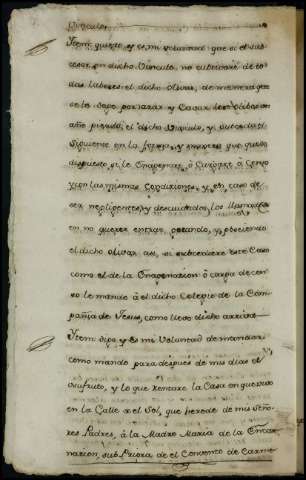 Vinculo
Ytem quiero, y es mi voluntad que si el sub
cesor en dicho Vinculo, no cultivare de to
das labores el dicho olivar, de manera que
se le dejo por arar y Cabar
año pierda, el dicho Vinculo, y subceda el
siguiente en la forma, y manera que queda
dispuesto, si le Enagenare, ò Cargare, ò Censo
y con las mismas Condiciones, y en caso de
ser negligentes, y descuidados, los llamados
en no querer entrar, gozando, y poseiendo
el dicho olivar, asi, si subcediere este Caso
como el de la Enagenacion, ò carga de cen
so le mando à el dicho Colegio de la Com
pañia de Jesus, como llevo dicho arriba
Ytem digo, y es mi Voluntad de mandar
como mando para despues de mis dias el
usufruto, y lo que rentare la Casa en que vivo
en la Calle de el Sol, que herede de mis Seño
res Padres, à la Madre Maria de la Encar
nacion, sub Priora de el Convento de Carme